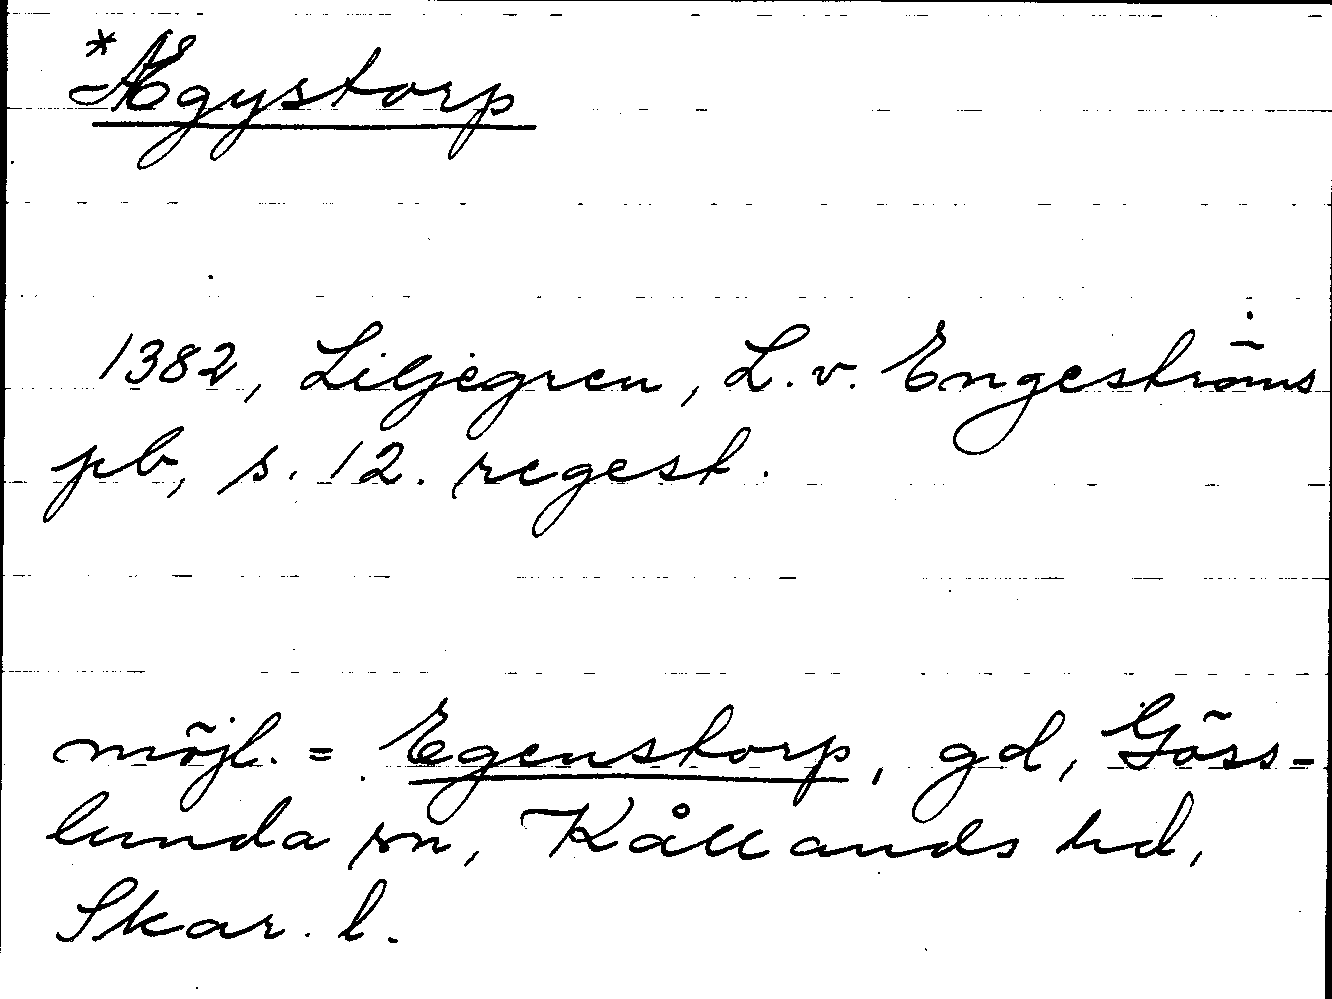 *Ægystorp
1382, Liljegren, L. v. Engeströms
pb, s. 12. regest.
möjl. = Egenstorp, gd, Göss-
lunda sn, Kållands hd,
Skar. l.